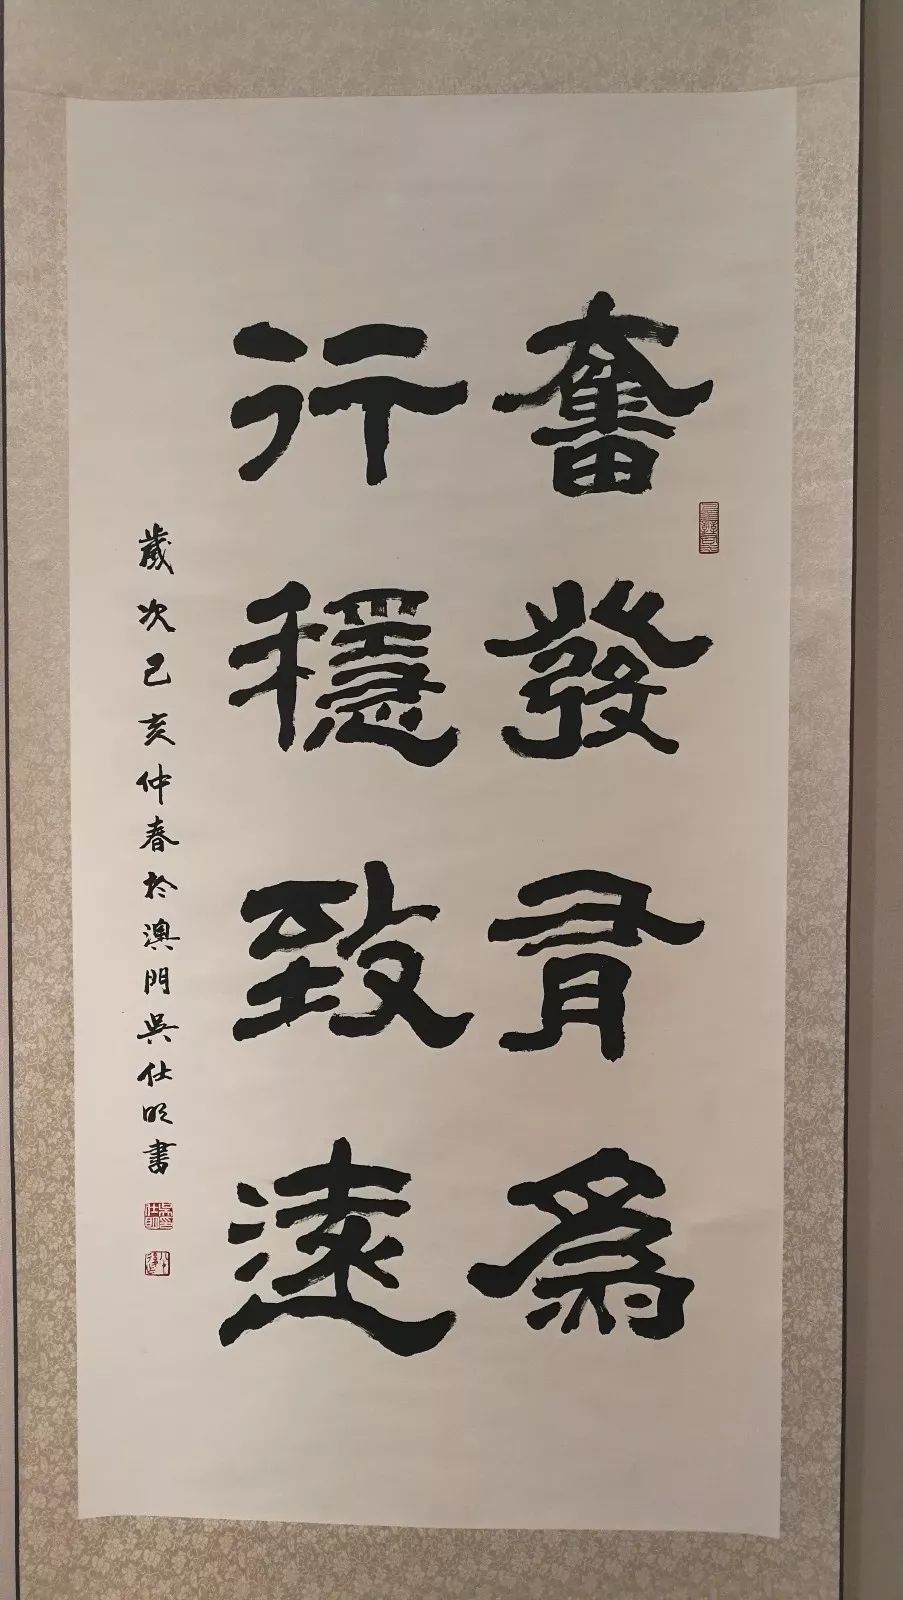 奮發有為
行穩致遠
歲次己亥仲春於澳門吳仕明書